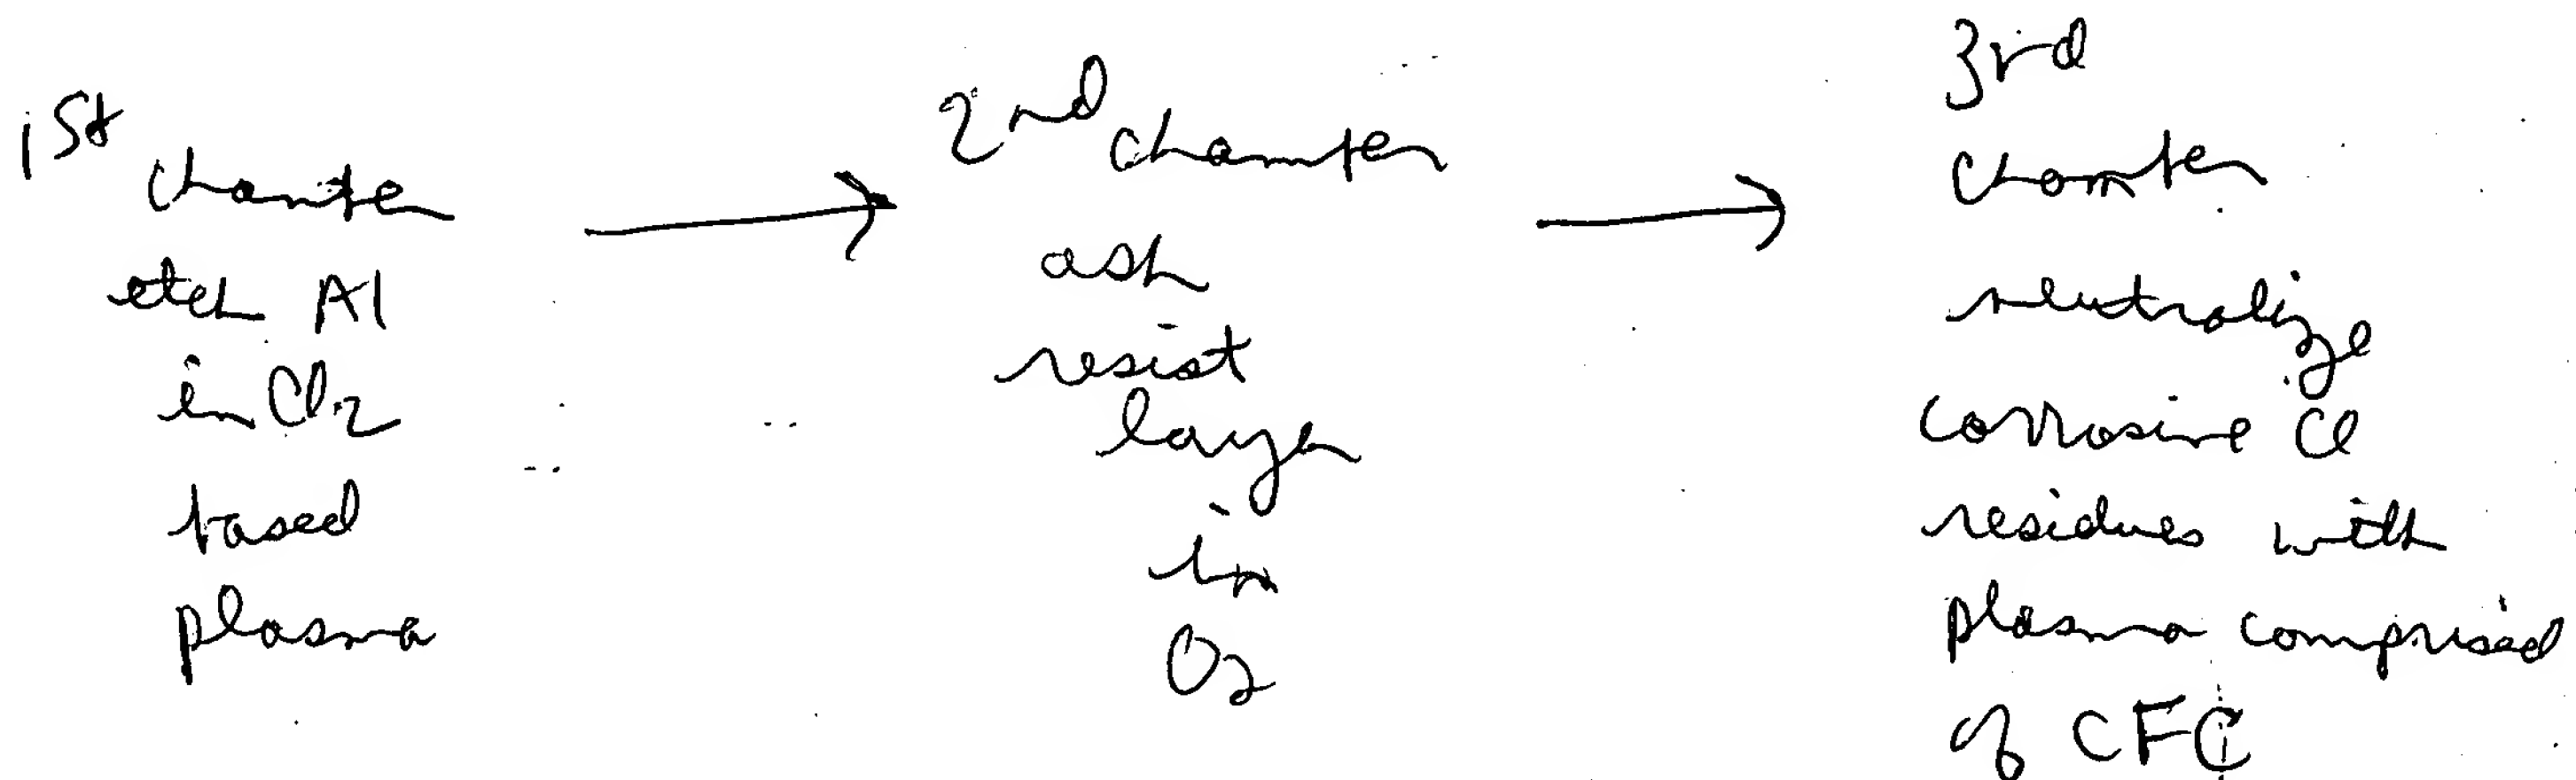 1st
chamber
etch Al
in Cl2
based
plasma
2nd chamber
ash
resist
layer
in
O2
3rd
chamber
neutralize
corrosive Cl
residues with
plasma comprised
of CFC